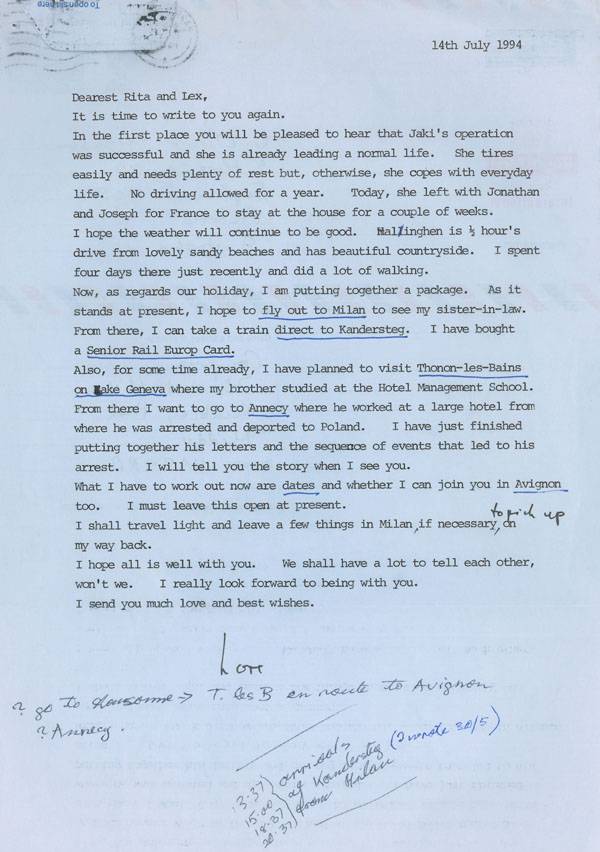 To open slit here
14th July 1994
Dearest Rita and Lex,
It is time to write to you again.
In the first place you will be pleased to hear that Jaki's operation
was successful and she is already leading a normal life. She tires
easily and needs plenty of rest but, otherwise, she copes with everyday
life. No driving allowed for a year. Today, she left with Jonathan
and Joseph for France to stay at the house for a couple of weeks.
I hope the weather will continue to be good. Hallinghen is ½ hour's
drive from lovely sandy beaches and has beautiful countryside. I spent
four days there just recently and did a lot of walking.
Now, as regards our holiday, I am putting together a package. As it
stands at present, I hope to fly out to Milan to see my sister-in-law.
From there, I can take a train direct to Kandersteg. I have bought
a Senior Rail Europ Card.
Also, for some time already, I have planned to visit Thonon-les-Bains
on Lake Geneva where my brother studied at the Hotel Management School.
From there I want to go to Annecy where he worked at a large hotel from
where he was arrested and deported to Poland. I have just finished
putting together his letters and the sequence of events that led to his
arrest. I will tell you the story when I see you.
What I have to work out now are dates and whether I can join you in Avignon
too. I must leave this open at present.
to pick up
I shall travel light and leave a few things in Milan, if necessary, on
my way back.
I hope all is well with you. We shall have a lot to tell each other,
won't we. I really look forward to being with you.
I send you much love and best wishes.
? go to → T. les B en route to Avignon
? Annecy.
13.37
15.00
18.37
20.37
arrivals
at Kandersteg (I wrote 30/5)
from Milan